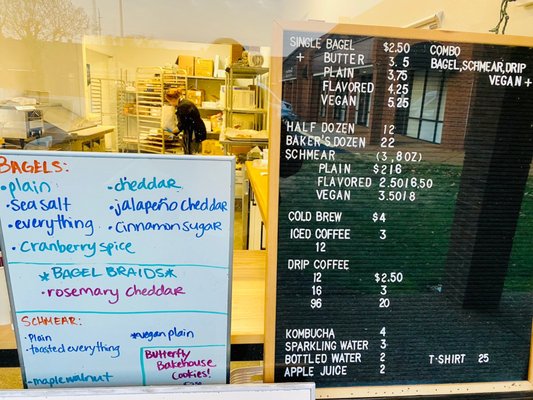 BAGELS:
• plain
• cheddar
• sea salt
• jalapeño cheddar
• everything
• Cinnamon sugar
• cranberry spice
*BAGEL BRAIDS*
• rosemary cheddar
SCHMEAR:
• Plain
*vegan plain
• toasted everything
• maple walnut
Butterfly
Bakehouse
Cookies!
SINGLE BAGEL $2.50
+ BUTTER 3.5
PLAIN 3.75
FLAVORED 4.25
VEGAN 5.25
COMBO
BAGEL,SCHMEAR,DRIP
VEGAN +
HALF DOZEN 12
BAKER'S DOZEN 22
SCHMEAR (3,8OZ)
PLAIN $2|6
FLAVORED 2.50|6.50
VEGAN 3.50|8
COLD BREW $4
ICED COFFEE 3
12
DRIP COFFEE
12 $2.50
16 3
96 20
KOMBUCHA 4
SPARKLING WATER 3
BOTTLED WATER 2
APPLE JUICE 2
T-SHIRT 25